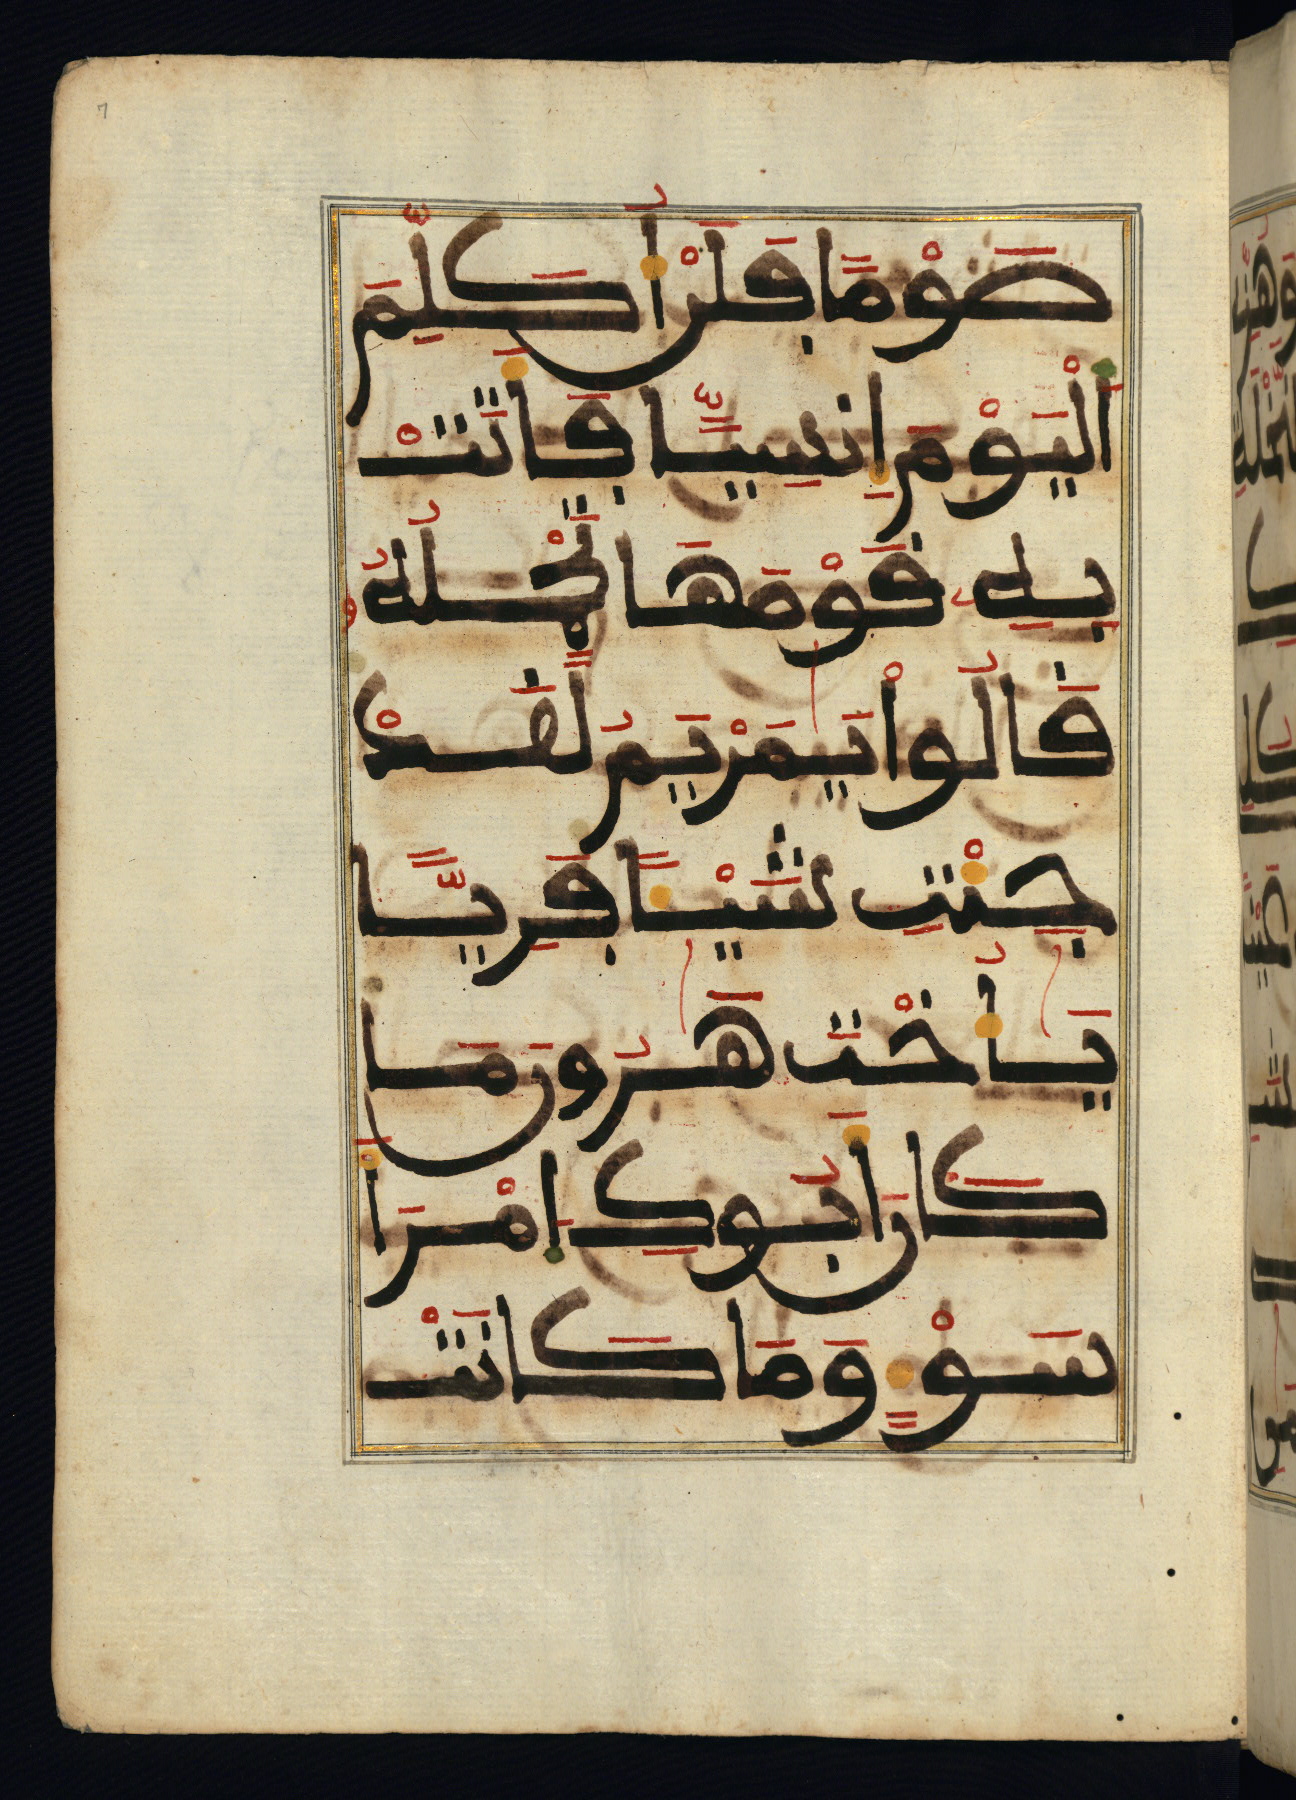 صَوْمًا فَلَنْ أُكَلِّمَ
اَلْيَوْمَ إِنسِيًّا فَأَتَتْ
بِهِ قَوْمَهَا تَحْمِلُهُ
قَالُواْ يَمَرْيَمُ لَقَدْ
جِئْتِ شَيْئًا فَرِيًّا
يَأُخْتَ هَرُونَ مَا
كَانَ أَبُوكِ اِمْرَأَ
سَوْءٍ وَمَا كَانَتْ
7